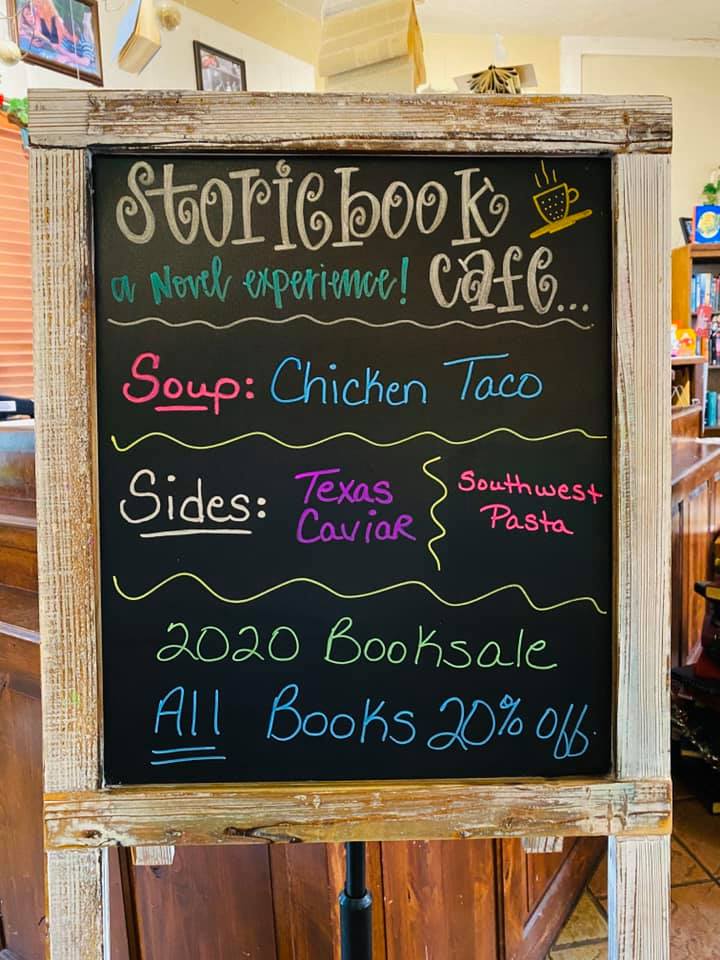 Storiebook
a Novel experience! Cafe...
Soup: Chicken Taco
Sides: Texas Caviar Southwest Pasta
2020 Booksale
All Books 20% off.